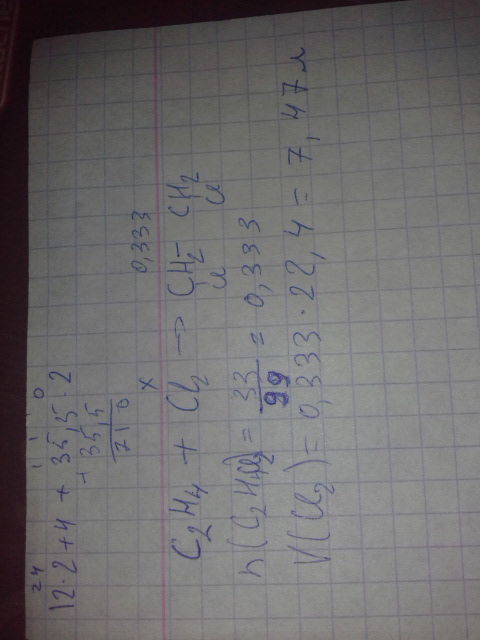 24
12·2+4 + 35,5·2
+ 35,5
71 0
x 0,333
C₂H₄ + Cl₂ → CH₂ – CH₂
Cl Cl
n(C₂H₄Cl₂) = 33/99 = 0,333
V(Cl₂) = 0,333 · 22,4 = 7,47 л